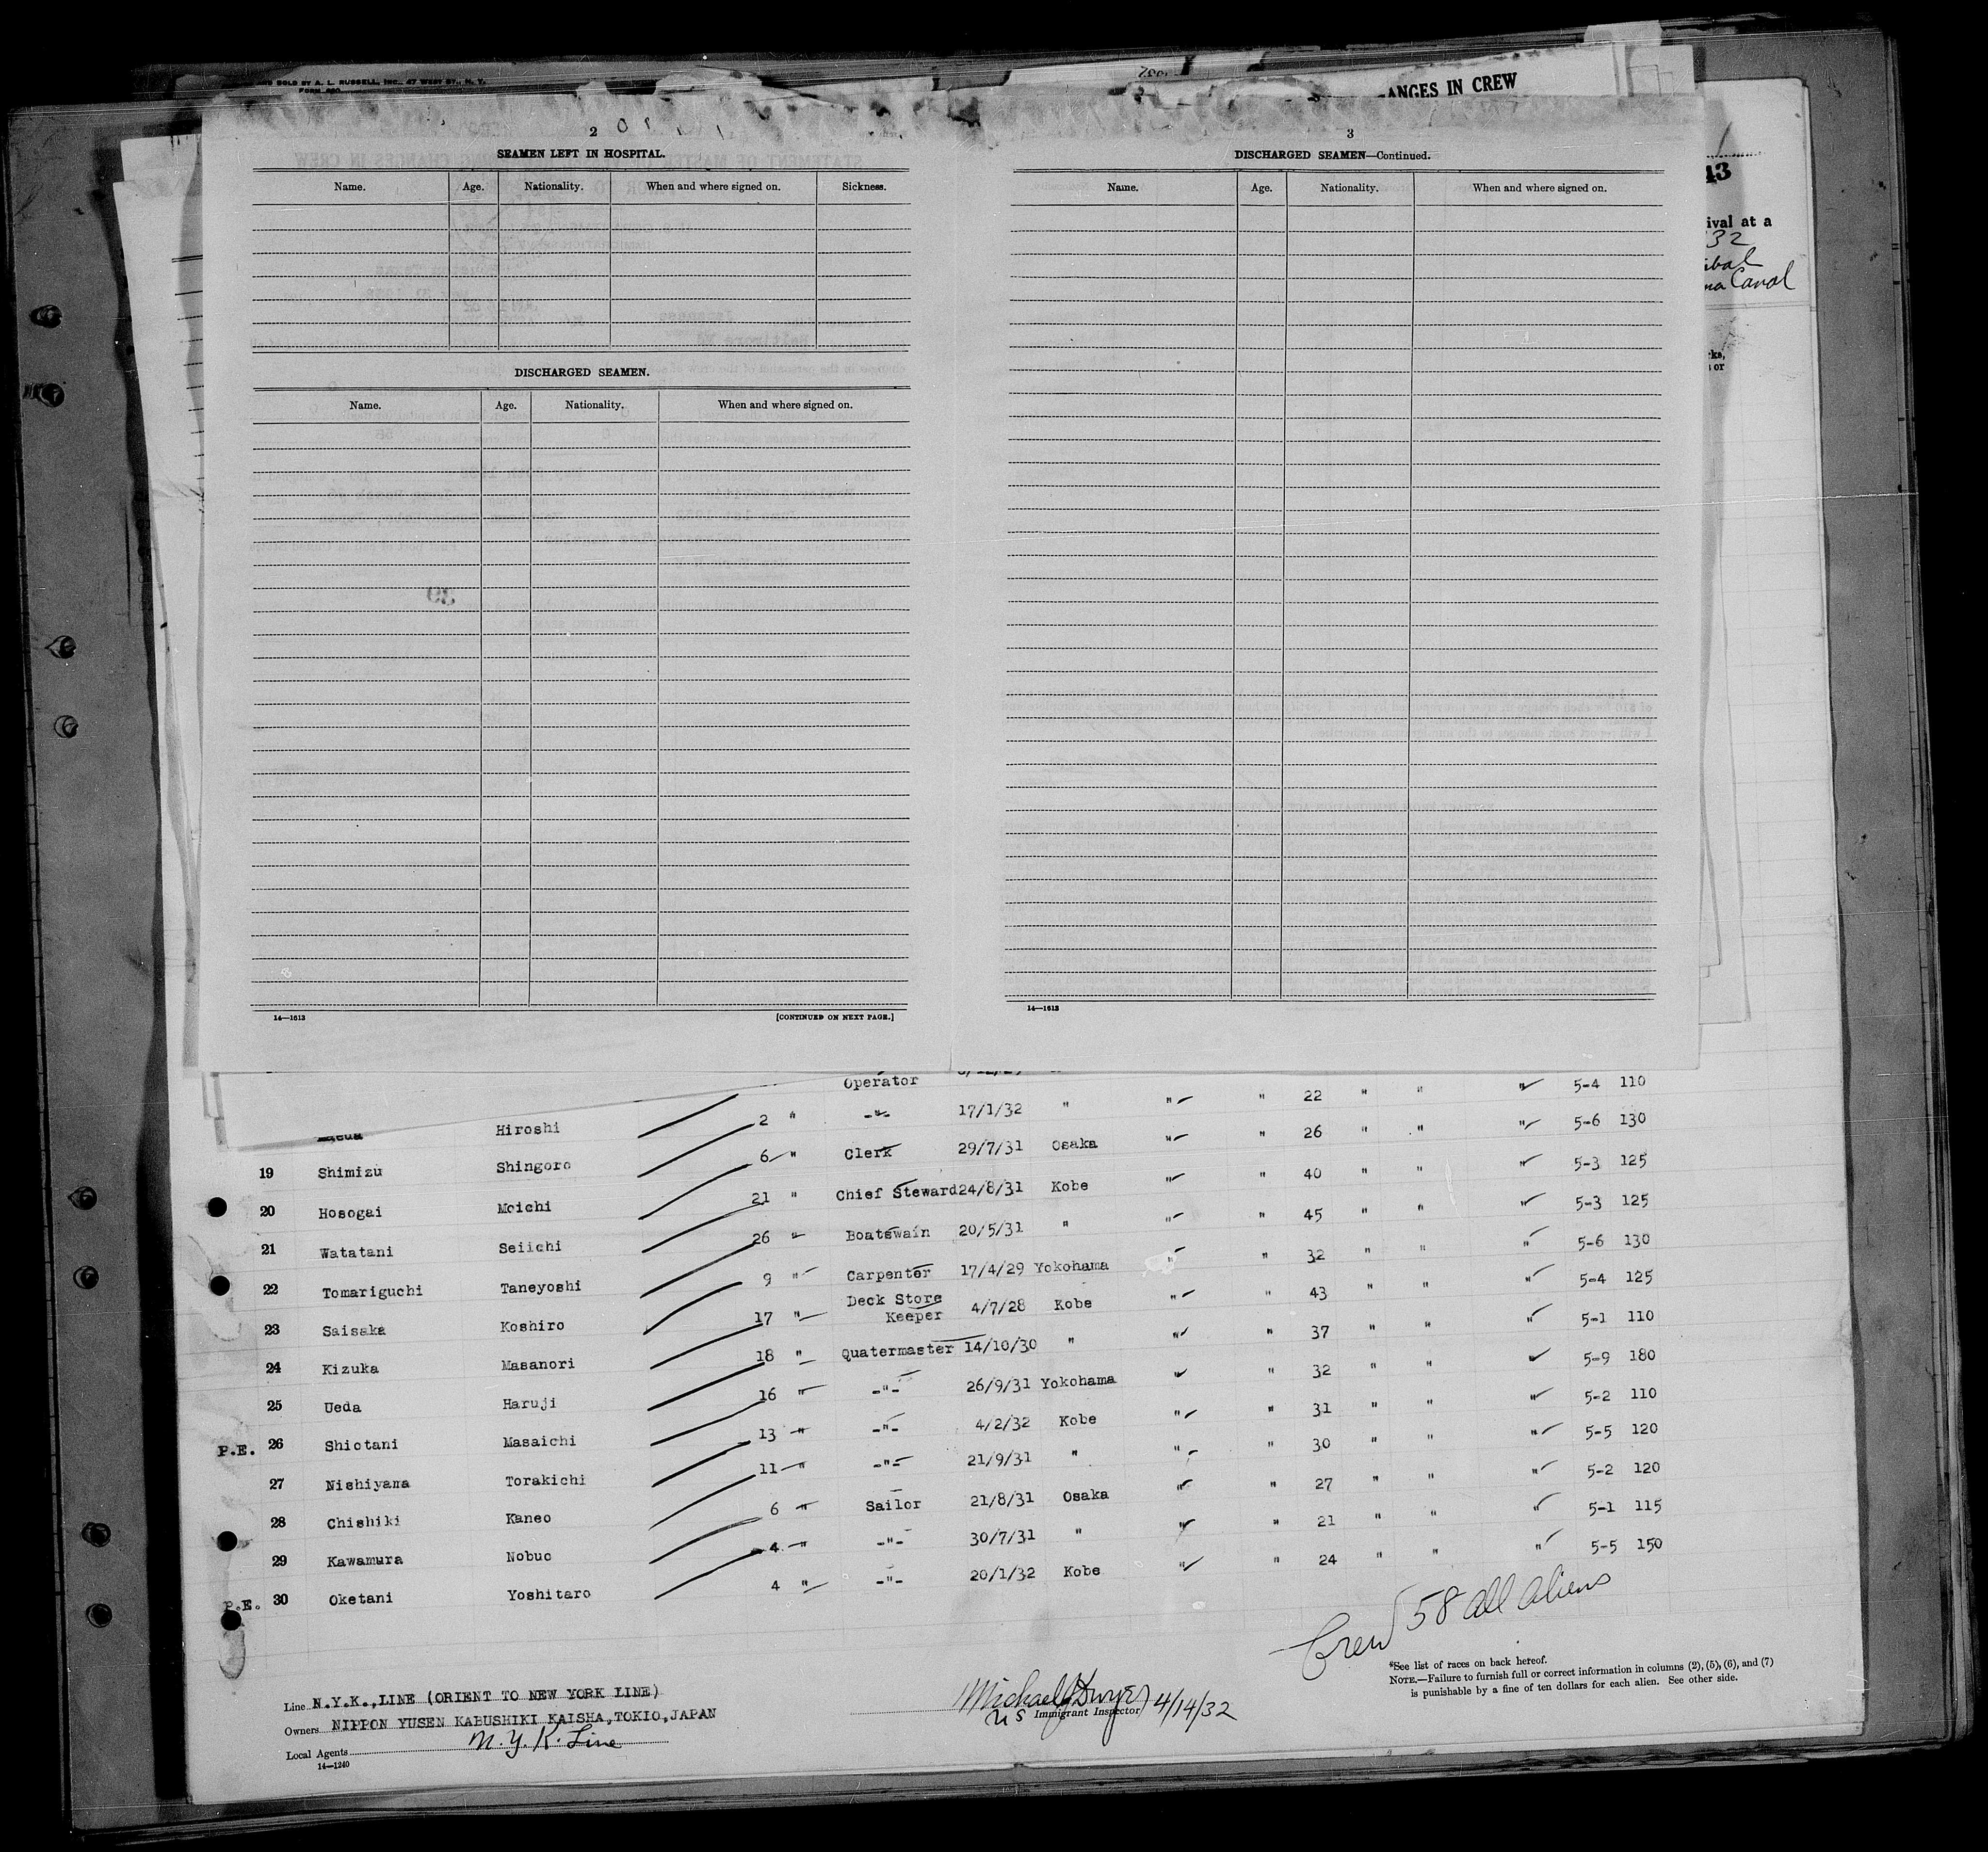 SOLD BY A. L. RUSSELL, INC., 47 WEST ST., N. Y.
ANGES IN CREW
2
SEAMEN LEFT IN HOSPITAL.
Name. Age. Nationality. When and where signed on. Sickness.
DISCHARGED SEAMEN.
Name. Age. Nationality. When and where signed on.
14—1613 [CONTINUED ON NEXT PAGE.]
3
DISCHARGED SEAMEN—Continued.
Name. Age. Nationality. When and where signed on.
14—1613
43
ival at a
32
Canal
Operator
Hiroshi 2 " -"- 17/1/32 " " " 22 " " " 5-4 110
19 Shimizu Shingoro 6 " Clerk 29/7/31 Osaka " " 26 " " " 5-6 130
20 Hosogai Moichi 21 " Chief Steward 24/8/31 Kobe " " 40 " " " 5-3 125
21 Watatani Seiichi 26 " Boatswain 20/5/31 " " " 45 " " " 5-3 125
22 Tomariguchi Taneyoshi 9 " Carpenter 17/4/29 Yokohama " " 32 " " " 5-6 130
23 Saisaka Koshiro 17 " Deck Store Keeper 4/7/28 Kobe " " 43 " " " 5-4 125
24 Kizuka Masanori 18 " Quatermaster 14/10/30 " " " 37 " " " 5-1 110
25 Ueda Haruji 16 " -"- 26/9/31 Yokohama " " 32 " " " 5-9 180
P.E. 26 Shiotani Masaichi 13 " -"- 4/2/32 Kobe " " 31 " " " 5-2 110
27 Nishiyama Torakichi 11 " -"- 21/9/31 " " " 30 " " " 5-5 120
28 Chishiki Kaneo 6 " Sailor 21/8/31 Osaka " " 27 " " " 5-2 120
29 Kawamura Nobuo 4 " -"- 30/7/31 " " " 21 " " " 5-1 115
P.E. 30 Oketani Yoshitaro 4 " -"- 20/1/32 Kobe " " 24 " " " 5-5 150
Crew 58 all aliens
*See list of races on back hereof.
NOTE.—Failure to furnish full or correct information in columns (2), (5), (6), and (7)
is punishable by a fine of ten dollars for each alien. See other side.
Line N.Y.K.,LINE (ORIENT TO NEW YORK LINE)
Owners NIPPON YUSEN KABUSHIKI KAISHA,TOKIO,JAPAN
Local Agents N. Y. K. Line
14—1240
Michael J Dwyer 4/14/32
US Immigrant Inspector